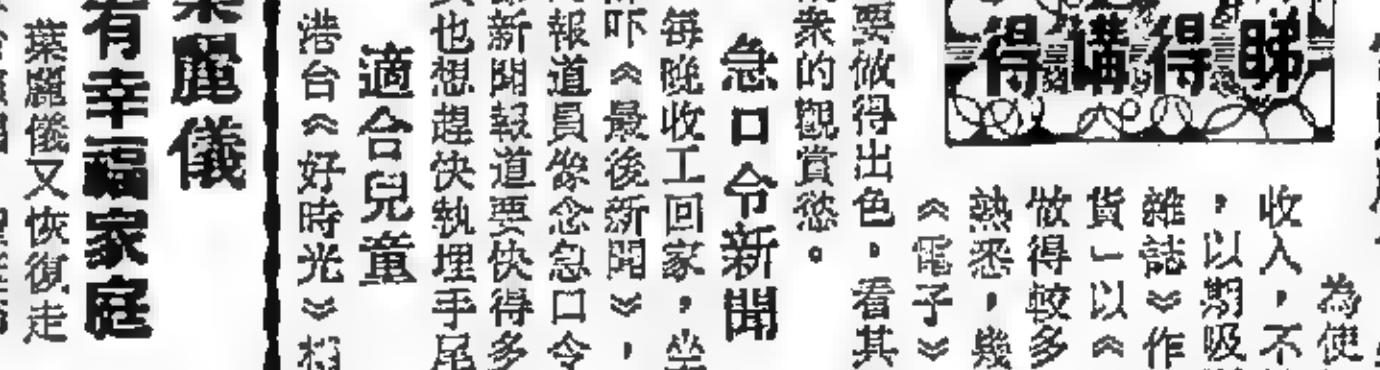 睇得講得
為使
收入，不
，以期吸
雜誌》作
貨」以《
做得較多
熟悉，幾
《電子》
要做得出色，看其
眾的觀賞慾。
急口令新聞
每晚收工回家，坐
吓《最後新聞》，
報道員像念急口令
新聞報道要快得多
也想趕快執埋手尾
適合兒童
港台《好時光》欄
麗儀
有幸福家庭
葉麗儀又恢復走